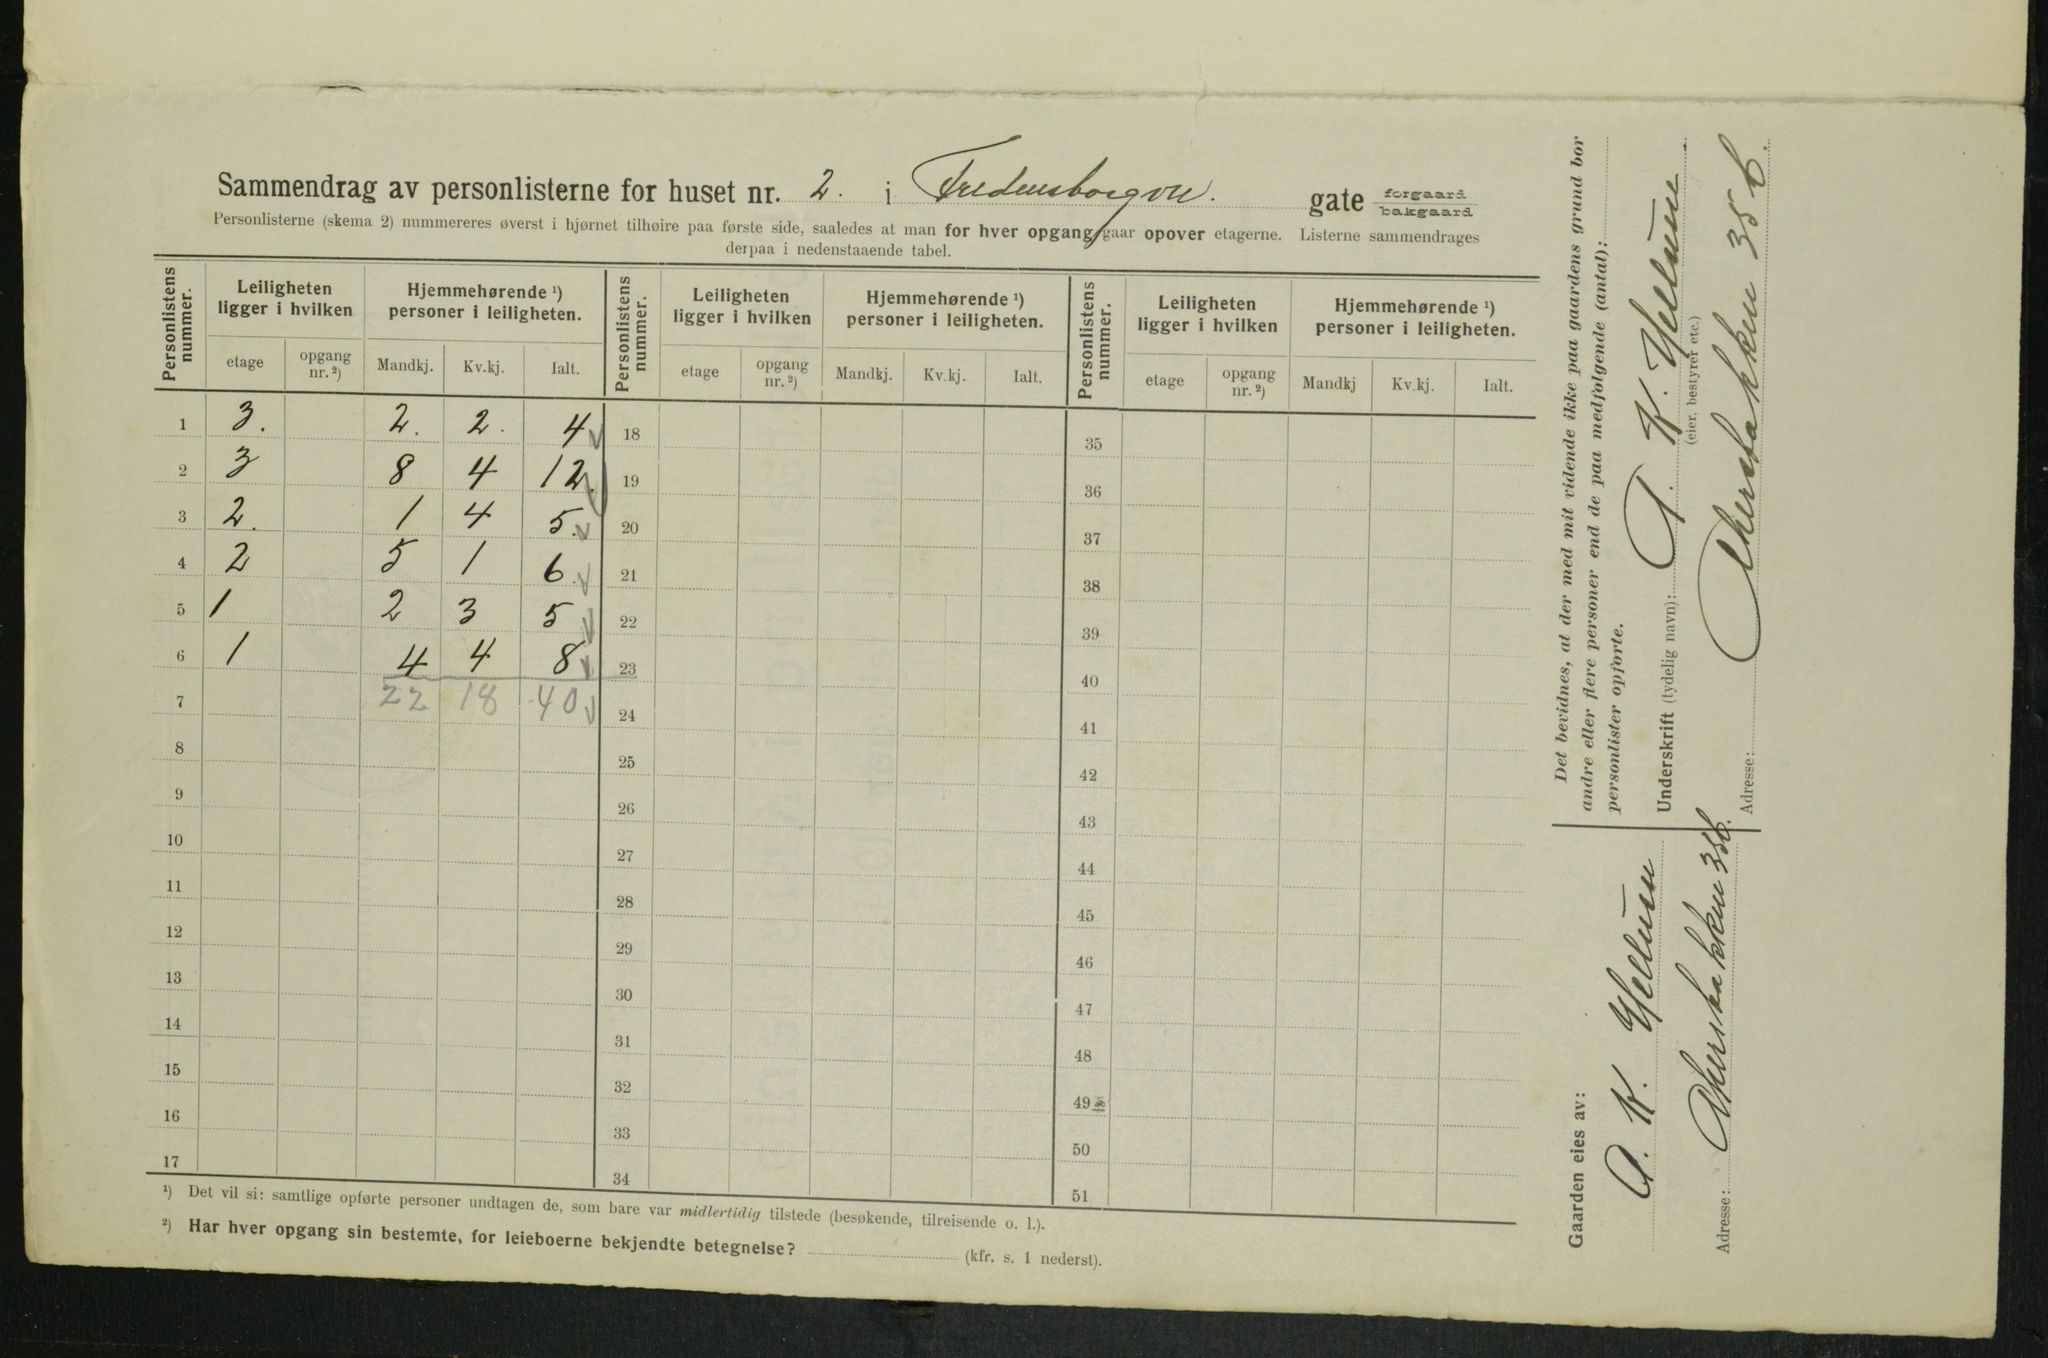 Sammendrag av personlisterne for huset nr. 2. i Fredensborgvn. gate forgaard bakgaard
Personlisterne (skema 2) nummereres øverst i hjørnet tilhøire paa første side, saaledes at man for hver opgang gaar opover etagerne. Listerne sammendrages
derpaa i nedenstaaende tabel.
Personlistens nummer. Leiligheten ligger i hvilken Hjemmehørende ¹) personer i leiligheten. Personlistens nummer. Leiligheten ligger i hvilken Hjemmehørende ¹) personer i leiligheten. Personlistens nummer. Leiligheten ligger i hvilken Hjemmehørende ¹) personer i leiligheten.
etage opgang nr. ²) Mandkj. Kv.kj. Ialt. etage opgang nr. ²) Mandkj. Kv.kj. Ialt. etage opgang nr. ²) Mandkj Kv.kj. Ialt.
1 3. 2. 2. 4 18 35
2 3 8 4 12. 19 36
3 2. 1 4 5. 20 37
4 2 5 1 6. 21 38
5 1 2 3 5 22 39
6 1 4 4 8 23 40
7 22 18 40 24 41
8 25 42
9 26 43
10 27 44
11 28 45
12 29 46
13 30 47
14 31 48
15 32 49
16 33 50
17 34 51
¹) Det vil si: samtlige opførte personer undtagen de, som bare var midlertidig tilstede (besøkende, tilreisende o. l.).
²) Har hver opgang sin bestemte, for leieboerne bekjendte betegnelse? (kfr. s. 1 nederst).
Det bevidnes, at der med mit vidende ikke paa gaardens grund bor
andre eller flere personer end de paa medfølgende (antal):
personlister opførte.
Underskrift (tydelig navn): A. K.
(eier, bestyrer etc.)
Adresse: Akersbakken 35 b.
Gaarden eies av:
A. K.
Adresse: Akersbakken 35b.